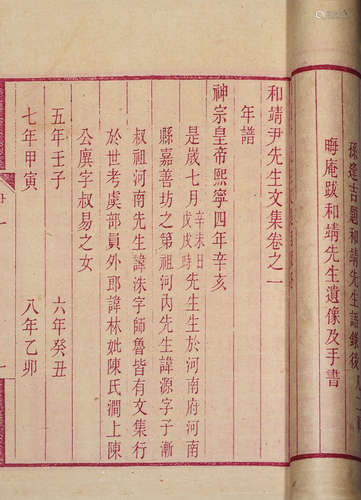 孫逢吉和靖先生語錄後
晦庵跋和靖先生遺像及手書
和靖尹先生文集卷之一
年譜
神宗皇帝熙寧四年辛亥
是歲七月辛未日戊戌時先生生於河南府河南
縣嘉善坊之第祖河內先生諱源字子漸
叔祖河南先生諱洙字師魯皆有文集行
於世考虞部員外郎諱林妣陳氏澗上陳
公廩字叔易之女
五年壬子 六年癸丑
七年甲寅 八年乙卯